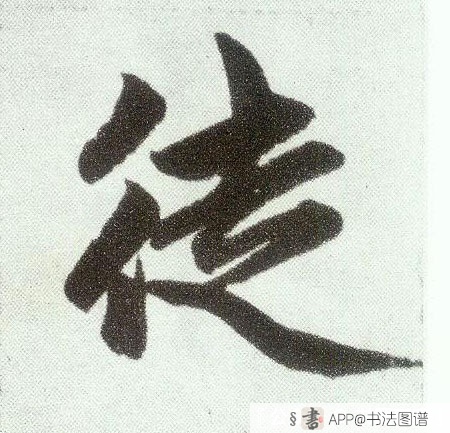 徒
§書 APP@书法图谱